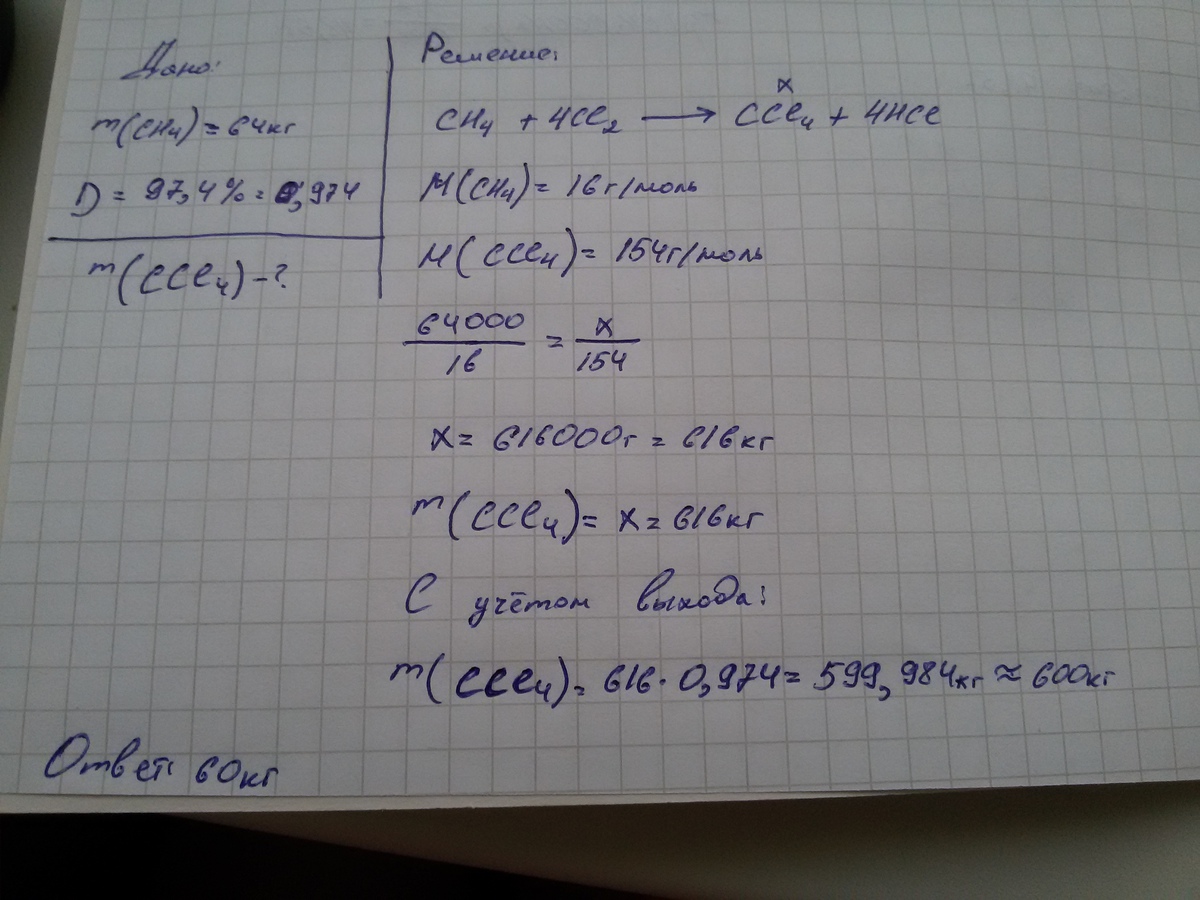 Дано:
m(CH₄) = 64кг
D = 97,4% = 0,974
m(CCl₄) - ?
Решение:
x
CH₄ + 4Cl₂ ⟶ CCl₄ + 4HCl
M(CH₄) = 16г/моль
M(CCl₄) = 154г/моль
64000/16 = x/154
x = 616000г = 616кг
m(CCl₄) = x = 616кг
С учётом выхода:
m(CCl₄) = 616 · 0,974 = 599,984кг ≈ 600кг
Ответ: 60кг